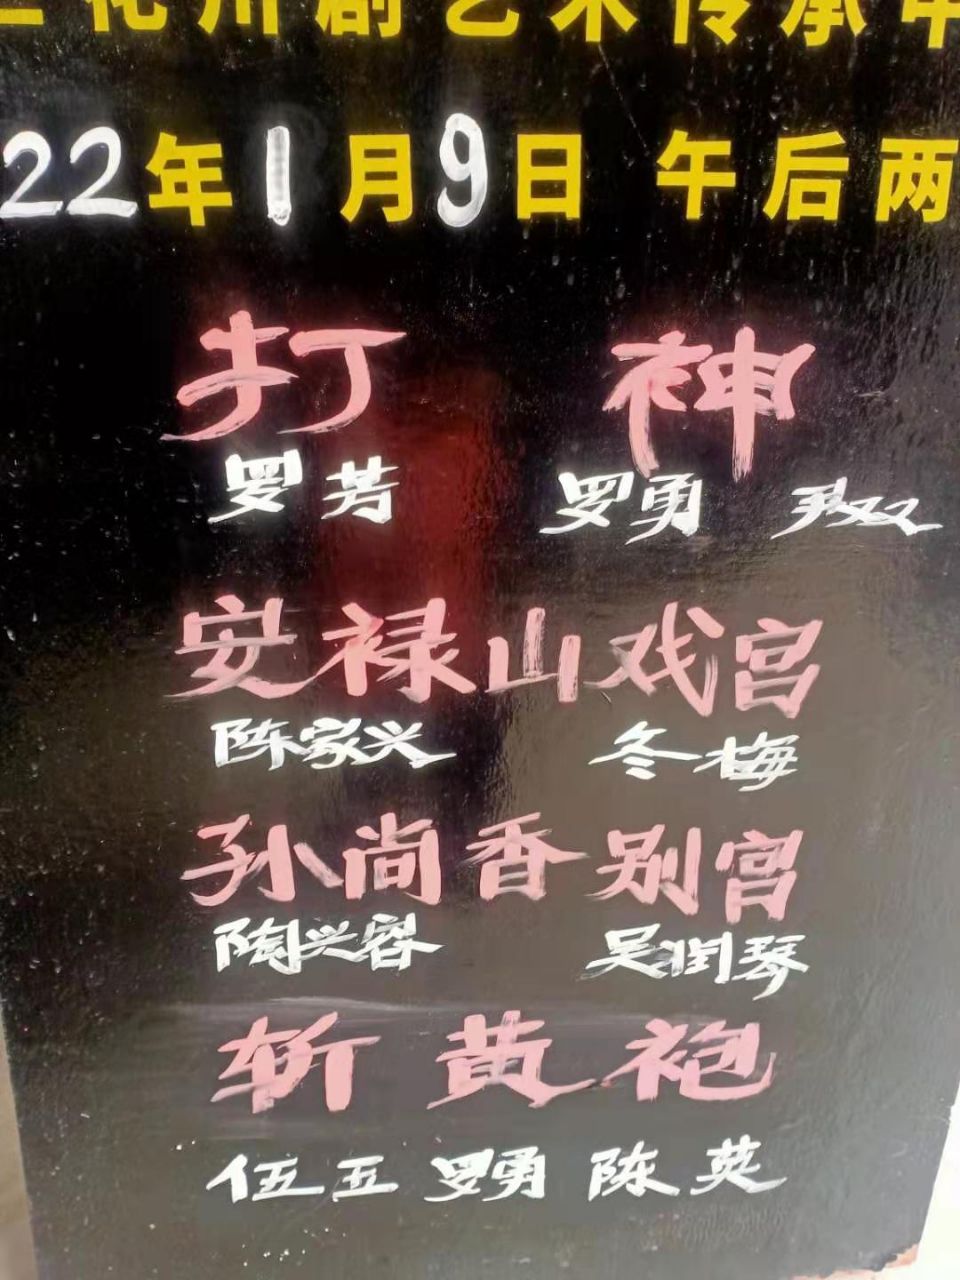 三花川剧艺术传承中
22年1月9日 午后两
打 神
罗芳 罗勇
安禄山戏宫
陈家兴 冬梅
孙尚香别宫
陶兴容 吴润琴
斩黄袍
伍五 罗勇 陈英